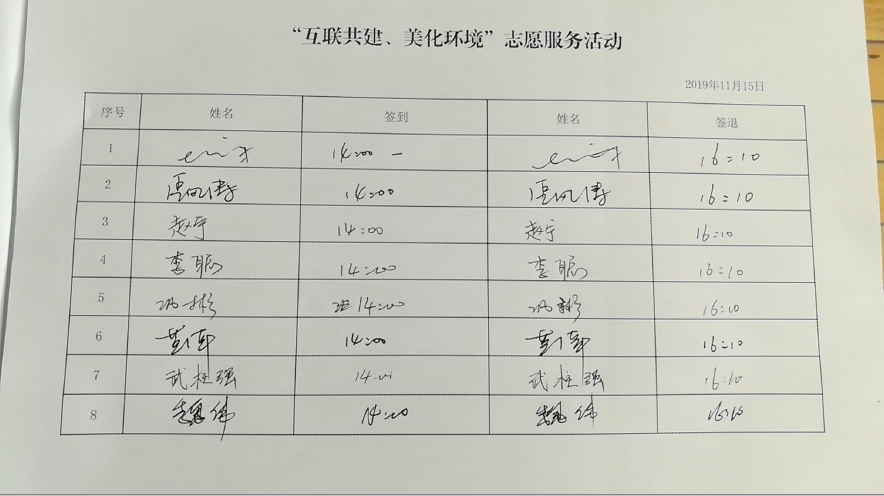 “互联共建、美化环境”志愿服务活动
2019年11月15日
序号 姓名 签到 姓名 签退
1 14:00 — 16:10
2 14:00 16:10
3 赵宁 14:00 赵宁 16:10
4 李聪 14:00 李聪 16:10
5 巩彬 14:00 巩彬 16:10
6 黄伟 14:00 黄伟 16:10
7 武柱强 14:00 武柱强 16:10
8 14:00 16:10